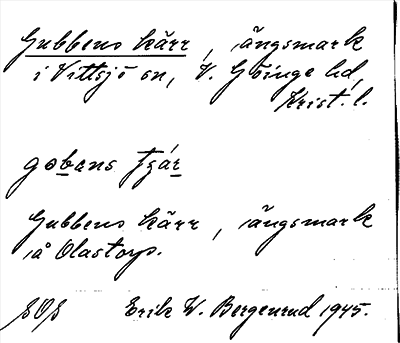 Gubbens kärr, ängsmark
i Vittsjö sn, V. Göinge hd,
Krist. l.
gobans tjár
Gubbens kärr, ängsmark
på Olastorp.
SOS Erik W. Bergenrud 1945.